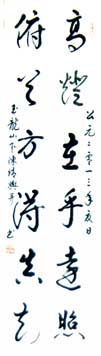 公元二零一三年夏日
高燈在乎遠照
俯首方得真知
玉龍山下陳